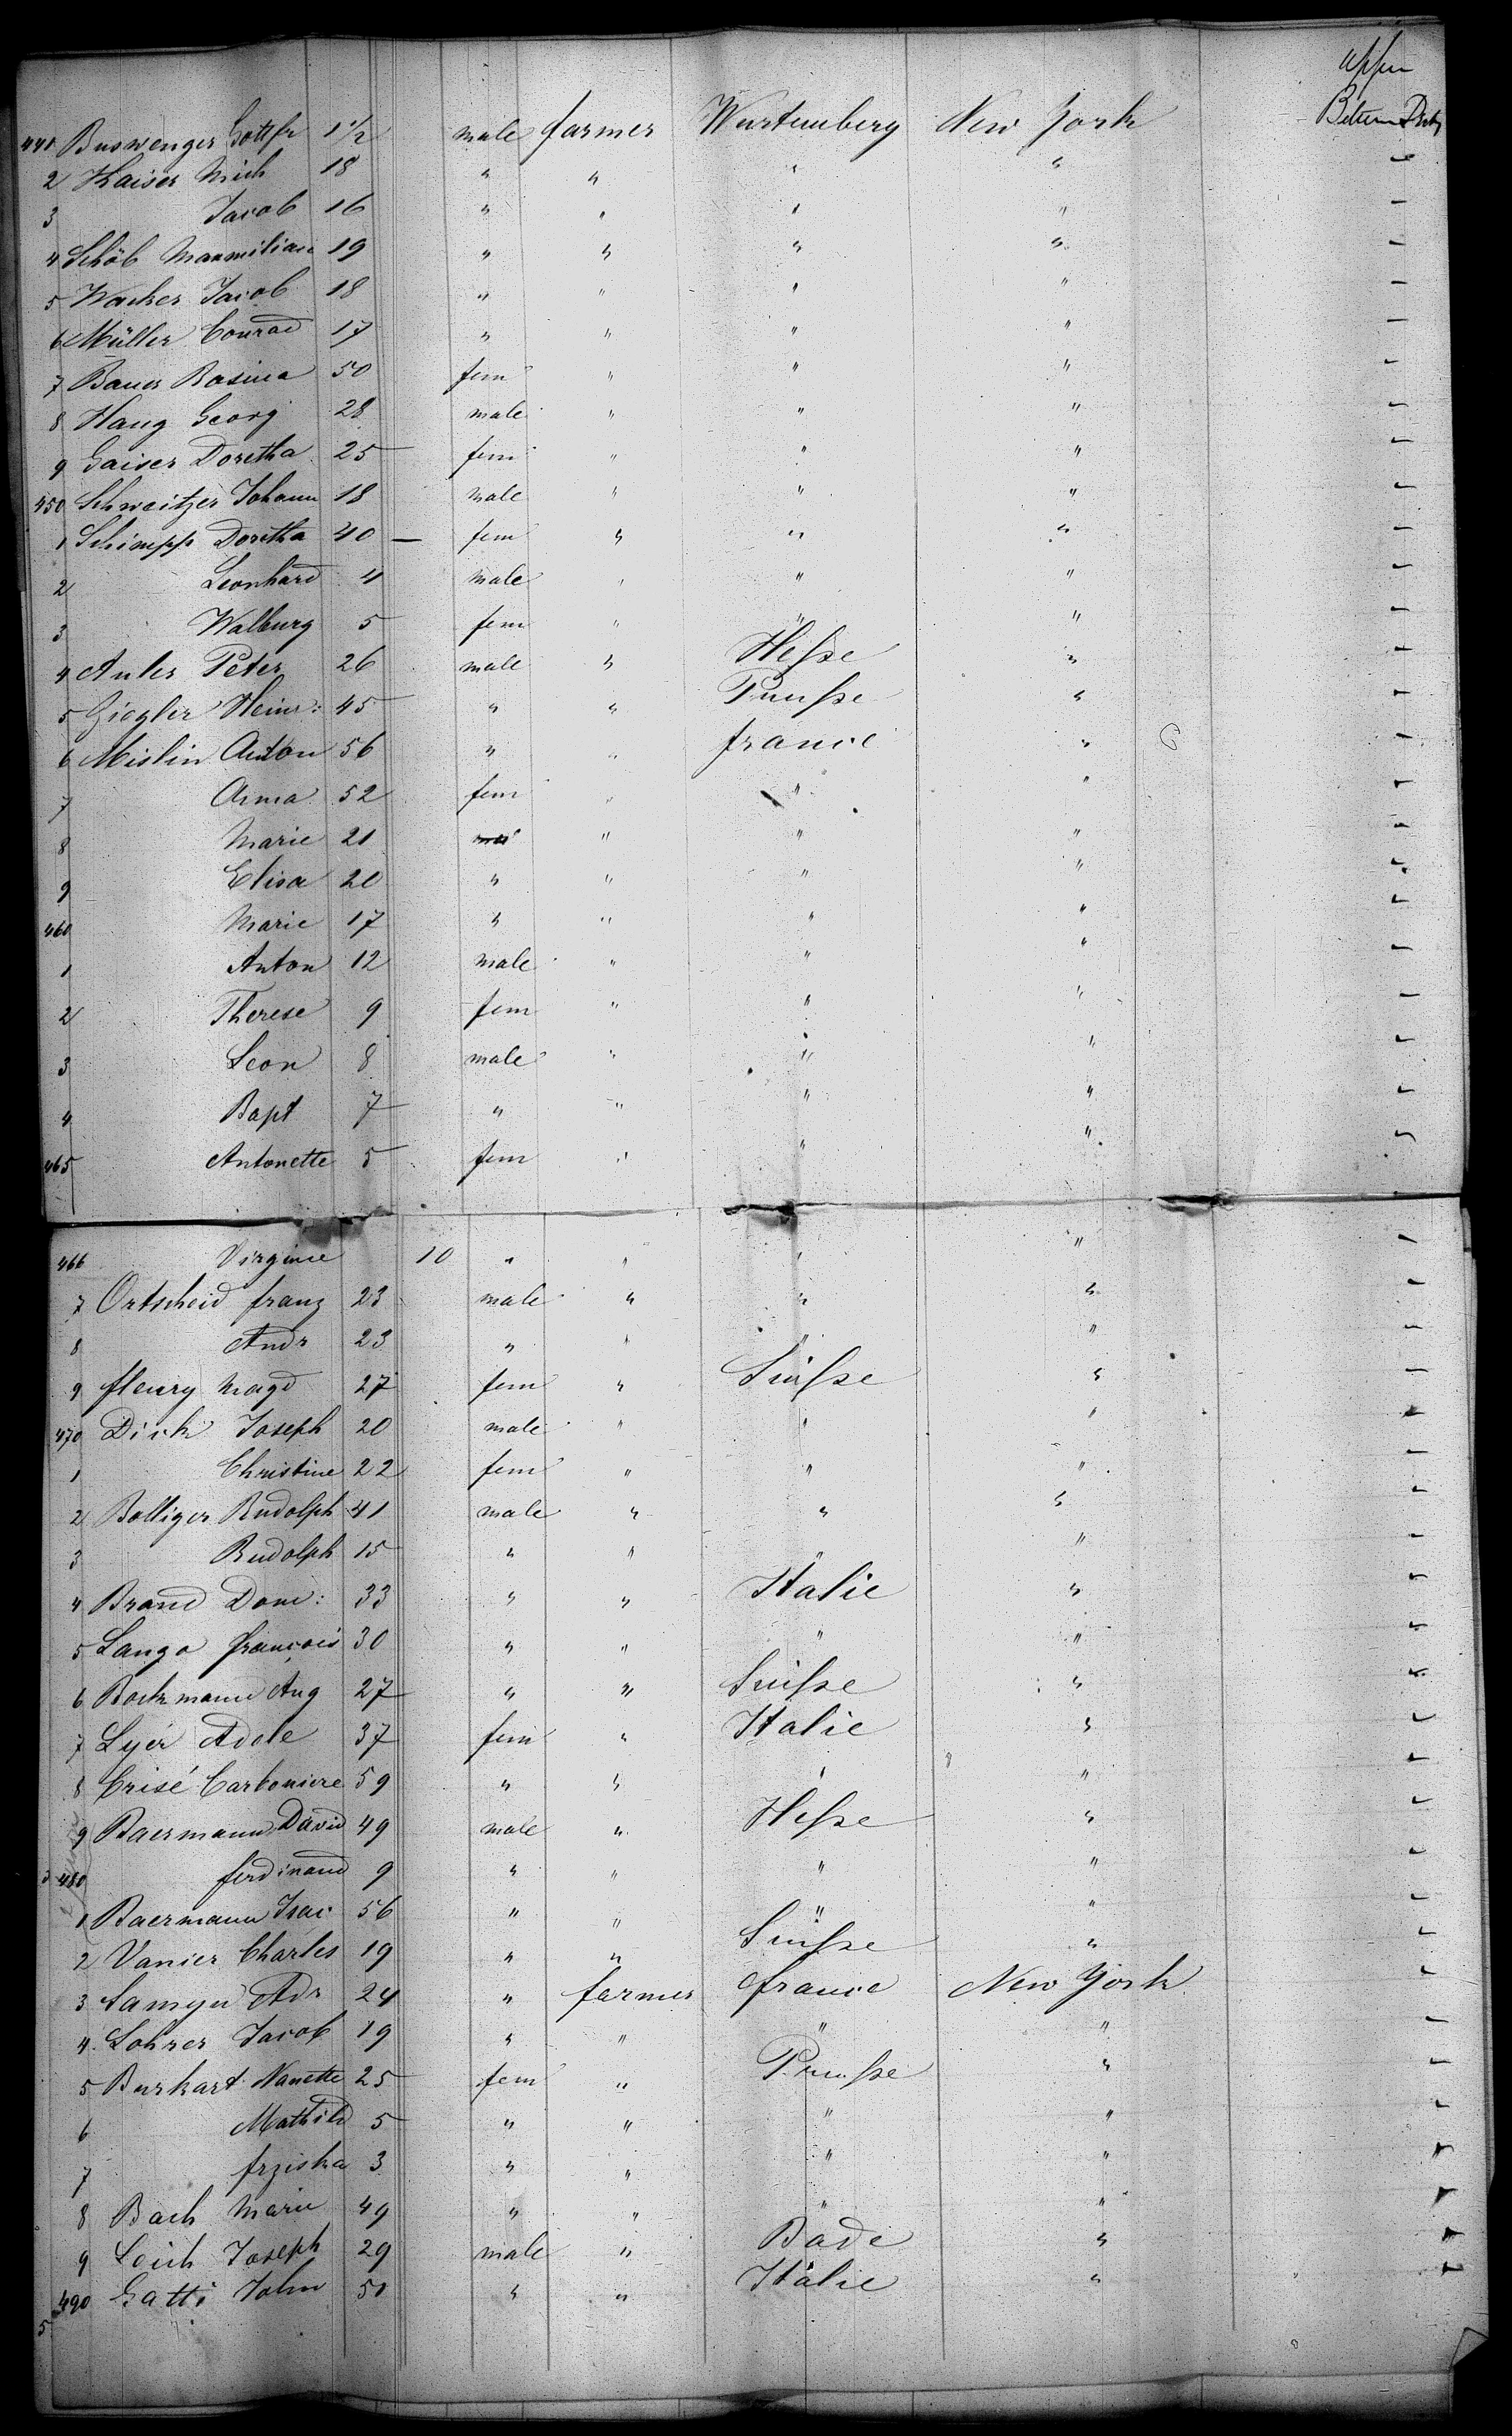 upper
Between Deck
441 Buswenger Gottfr 1 1/2 male farmer Wurtemberg New York
2 Kaiser Mich 18 " " " " -
3 Jacob 16 " " " " -
4 Schöb Maxmilian 19 " " " " -
5 Wacker Jacob 18 " " " " -
6 Müller Conrad 17 " " " " -
7 Bauer Rosina 50 fem " " " -
8 Haug Georg 28 male " " " -
9 Gaiser Doretha 25 fem " " " -
450 Schweitzer Johann 18 male " " " -
1 Schimpp Doretha 40 - fem " " " -
2 Leonhard 4 male " " " -
3 Walburg 5 fem " " " -
4 Auler Peter 26 male " Hesse " -
5 Ziegler Heinr: 45 " " Preusse " -
6 Mislin Anton 56 " " france " -
7 Anna 52 fem " " " -
8 Marie 21 " " " -
9 Elisa 20 " " " " -
460 Marie 17 " " " " -
1 Anton 12 male " " " -
2 Therese 9 fem " " " -
3 Leon 8 male " " " -
4 Bapt 7 " " " " -
465 Antonette 5 fem " " " -
466 Virginie 10 " " " " -
7 Ortscheid franz 23 male " " " -
8 Andr 23 " " " " -
9 fleury Magd 27 fem " Suisse " -
470 Dick Joseph 20 male " " " -
1 Christine 22 fem " " " -
2 Bolliger Rudolph 41 male " " " -
3 Rudolph 15 " " " " -
4 Brand Dom: 33 " " Italie " -
5 Lango françois 30 " " " " -
6 Bockmann Aug 27 " " Suisse " -
7 Lyér Adele 37 fem " Italie " -
8 Crisé Carboniere 59 " " " " -
9 Baermann David 49 male " Hesse " -
480 ferdinand 9 " " " " -
1 Baermann Isac 56 " " " " -
2 Vanier Charles 19 " " Suisse " -
3 Samyn Adr 24 " farmer france New York -
4 Lohrer Jacob 19 " " " " -
5 Burkart Nanette 25 fem " Preusse " -
6 Mathild 5 " " " " -
7 frziska 3 " " " " -
8 Bach Marie 49 " " " " -
9 Leich Joseph 29 male " Bade " -
490 Gatti John 50 " " Italie " -
5